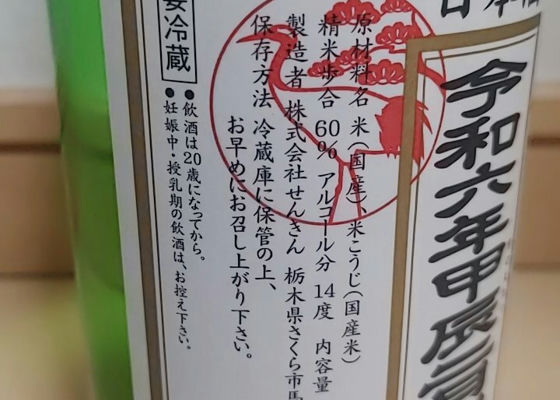 令和六年甲辰二
原材料名 米(国産)、米こうじ(国産米)
精米歩合 60% アルコール分 14度 内容量
製造者 株式会社せんきん 栃木県さくら市馬
保存方法 冷蔵庫に保管の上、
お早めにお召し上がり下さい。
要冷蔵
●飲酒は20歳になってから。
●妊娠中・授乳期の飲酒は、お控え下さい。